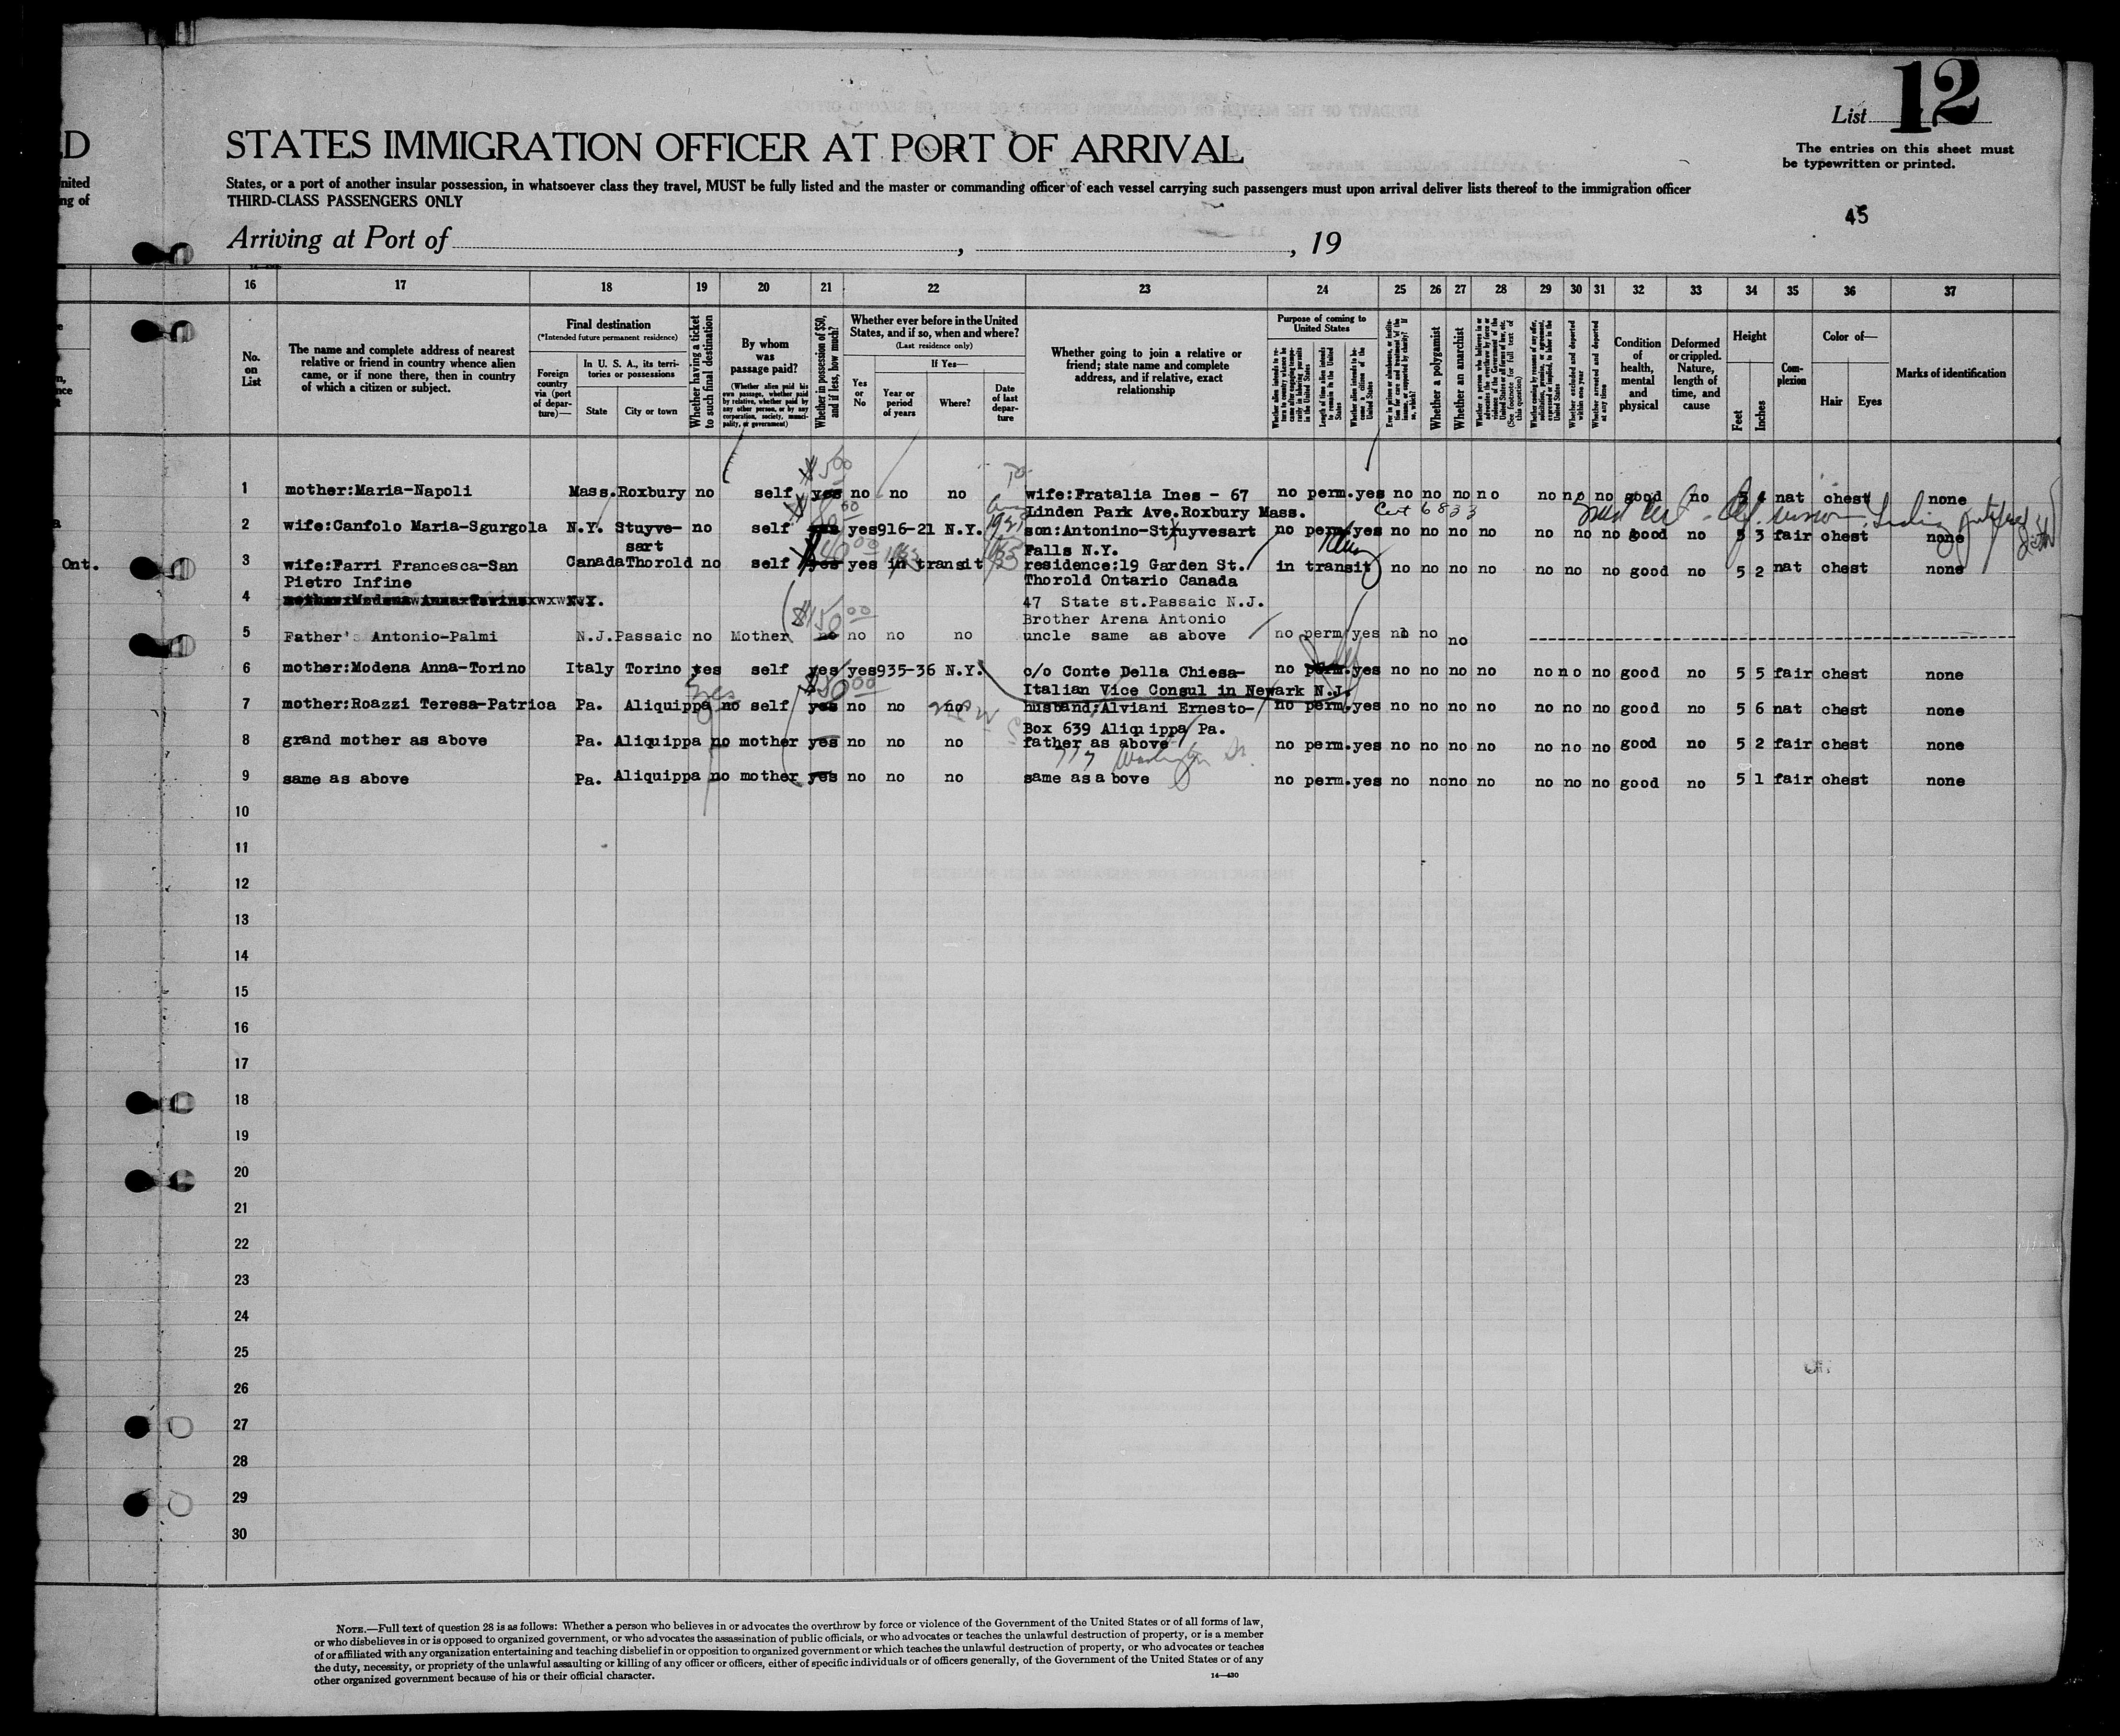 List 12
The entries on this sheet must
be typewritten or printed.
D
STATES IMMIGRATION OFFICER AT PORT OF ARRIVAL
nited
ng of
States, or a port of another insular possession, in whatsoever class they travel, MUST be fully listed and the master or commanding officer of each vessel carrying such passengers must upon arrival deliver lists thereof to the immigration officer
THIRD-CLASS PASSENGERS ONLY
45
Arriving at Port of , , 19
16 17 18 19 20 21 22 23 24 25 26 27 28 29 30 31 32 33 34 35 36 37
No. on List
The name and complete address of nearest relative or friend in country whence alien came, or if none there, then in country of which a citizen or subject.
Final destination
(*Intended future permanent residence)
Foreign country via (port of departure)—
In U. S. A., its territories or possessions
State
City or town
Whether having a ticket to such final destination
By whom was passage paid?
(Whether alien paid his own passage, whether paid by relative, whether paid by any other person, or by any corporation, society, municipality, or government)
Whether in possession of $50, and if less, how much?
Whether ever before in the United States, and if so, when and where?
(Last residence only)
Yes or No
If Yes—
Year or period of years
Where?
Date of last departure
Whether going to join a relative or friend; state name and complete address, and if relative, exact relationship
Purpose of coming to United States
Length of time alien intends to remain in the United States
Whether alien intends to become a citizen of the United States
Whether a polygamist
Whether an anarchist
Whether excluded and deported within one year
Whether arrested and deported at any time
Condition of health, mental and physical
Deformed or crippled. Nature, length of time, and cause
Height
Feet
Inches
Complexion
Color of—
Hair
Eyes
Marks of identification
1 mother:Maria-Napoli Mass. Roxbury no self yes no no no wife:Fratalia Ines - 67 no perm. yes no no no no no no no good no 5 4 nat chest none
$500
Linden Park Ave.Roxbury Mass.
Cert 6833
2 wife:Canfolo Maria-Sgurgola N.Y. Stuyve- no self yes 916-21 N.Y. son:Antonino-Stuyvesart no perm. yes no no no no no no no good no 5 3 fair chest none
sart
Falls N.Y.
Ont.
3 wife:Farri Francesca-San Canada Thorold no self yes yes in transit residence:19 Garden St. in transit no no no no no no no good no 5 2 nat chest none
Pietro Infine
Thorold Ontario Canada
4 N.Y. 47 State st.Passaic N.J.
$150.00
Brother Arena Antonio
5 Father's Antonio-Palmi N.J. Passaic no Mother no no no no uncle same as above no perm yes no no no
6 mother:Modena Anna-Torino Italy Torino yes self yes yes 935-36 N.Y. c/o Conte Della Chiesa- no perm. yes no no no no no no no good no 5 5 fair chest none
Italian Vice Consul in Newark N.J.
yes
7 mother:Roazzi Teresa-Patrica Pa. Aliquippa no self yes no no no husband:Alviani Ernesto- no perm. yes no no no no no no no good no 5 6 nat chest none
Box 639 Aliquippa Pa.
8 grand mother as above Pa. Aliquippa no mother yes no no no father as above no perm. yes no no no no no no no good no 5 2 fair chest none
Washington St.
9 same as above Pa. Aliquippa no mother yes no no no same as above no perm. yes no no no no no no no good no 5 1 fair chest none
10
11
12
13
14
15
16
17
18
19
20
21
22
23
24
25
26
27
28
29
30
NOTE.—Full text of question 28 is as follows: Whether a person who believes in or advocates the overthrow by force or violence of the Government of the United States or of all forms of law,
or who disbelieves in or is opposed to organized government, or who advocates the assassination of public officials, or who advocates or teaches the unlawful destruction of property, or is a member
of or affiliated with any organization entertaining and teaching disbelief in or opposition to organized government or which teaches the unlawful destruction of property, or who advocates or teaches
the duty, necessity, or propriety of the unlawful assaulting or killing of any officer or officers, either of specific individuals or of officers generally, of the Government of the United States or of any
other organized government because of his or their official character.
14—430